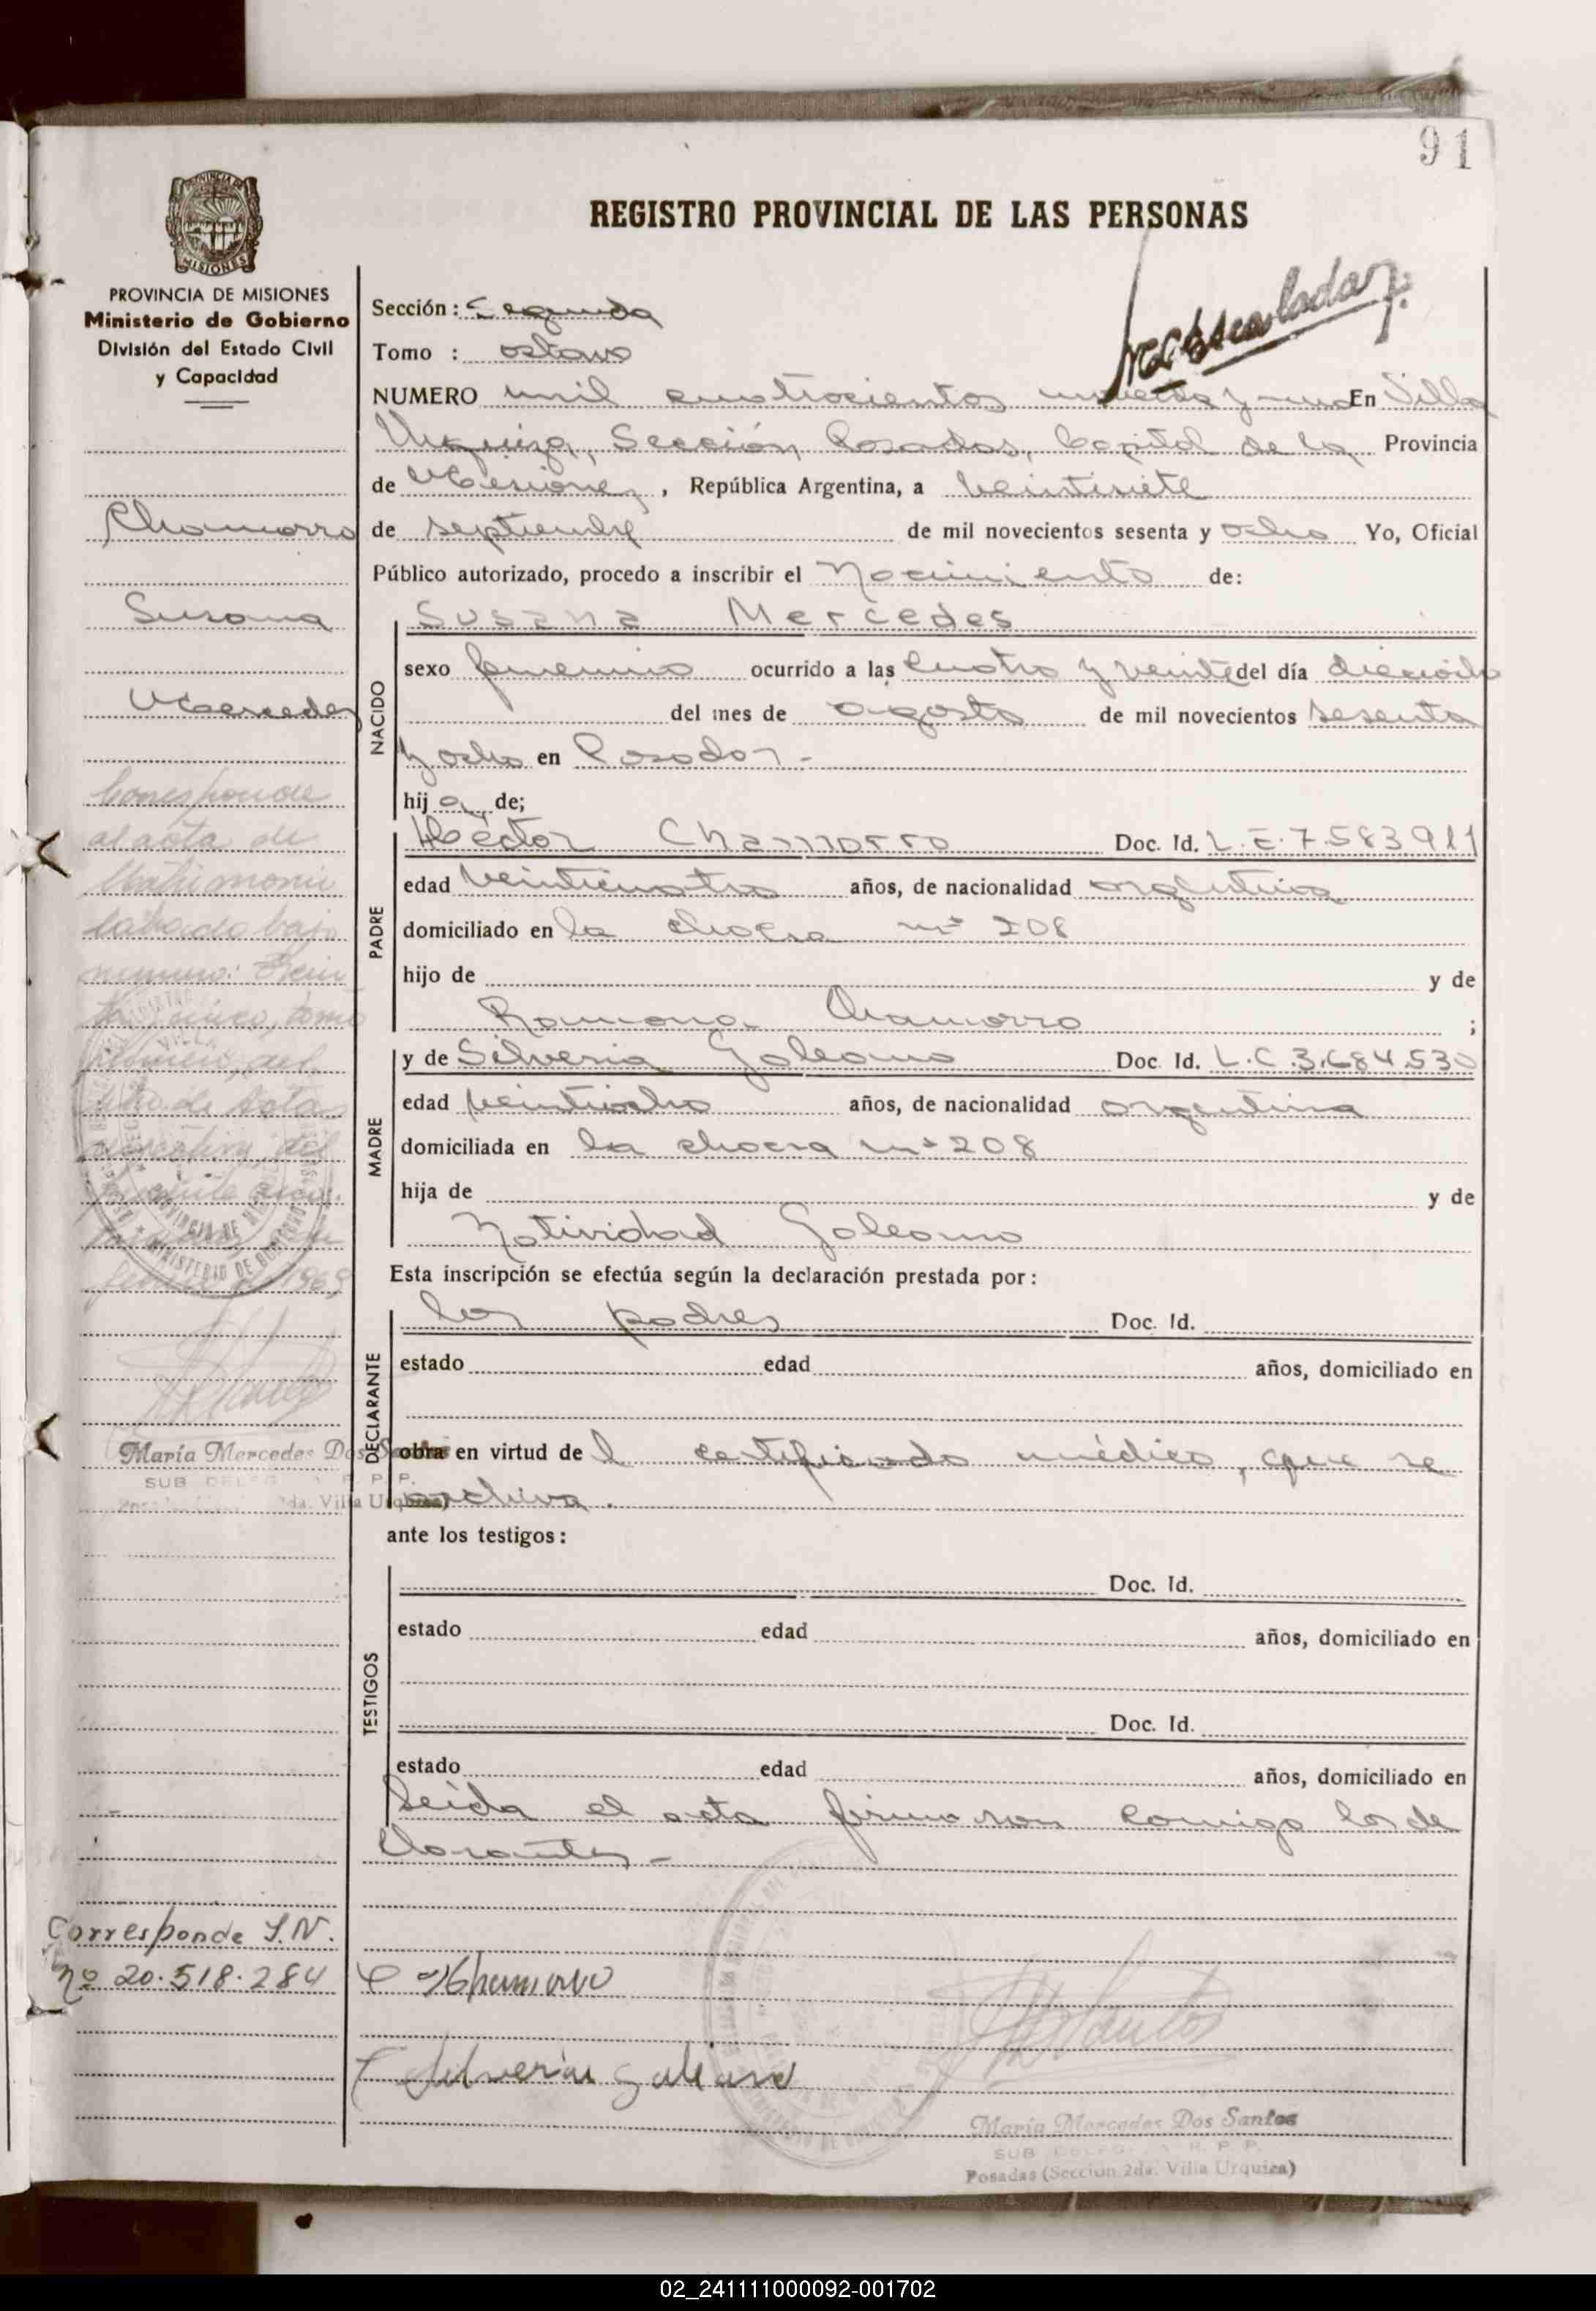 91
REGISTRO PROVINCIAL DE LAS PERSONAS
PROVINCIA DE MISIONES
Ministerio de Gobierno
División del Estado Civil
y Capacidad
Chamorro
Susana
Mercedes
Corresponde
al acta de
Matrimonio
labrada bajo
número: Vein
ticinco, tomo
del
libro de Actas
del
1969
María Mercedes Dos Santos
SUB DELEG R. P. P.
2da. Villa Urquiza)
Corresponde I.N.
nº 20.518.284
Sección: Segunda
Tomo : octavo
NUMERO mil cuatrocientos noventa y uno En Villa
Urquiza, Sección Posadas, Capital de la Provincia
de Misiones, República Argentina, a veintisiete
de septiembre de mil novecientos sesenta y ocho Yo, Oficial
Público autorizado, procedo a inscribir el Nacimiento de:
NACIDO
Susana Mercedes
sexo femenino ocurrido a las cuatro y veinte del día dieciocho
del mes de agosto de mil novecientos sesenta
y ocho en Posadas.-
hij a de;
PADRE
Héctor Chamorro Doc. Id. L.E. 7.583.911
edad veinticuatro años, de nacionalidad argentina
domiciliado en la chacra nº 208
hijo de y de
Ramona Chamorro ;
MADRE
y de Silveria Galeano Doc. Id. L.C. 3.684.530
edad veintiocho años, de nacionalidad argentina
domiciliada en la chacra nº 208
hija de y de
Natividad Galeano
Esta inscripción se efectúa según la declaración prestada por:
DECLARANTE
los padres Doc. Id.
estado edad años, domiciliado en
obra en virtud de l certificado médico, que se
archiva.
ante los testigos:
TESTIGOS
Doc. Id.
estado edad años, domiciliado en
Doc. Id.
estado edad años, domiciliado en
Leída el acta firmaron conmigo los de
clarantes -
Chamorro
Silveria Galeano
María Mercedes Dos Santos
SUB DELEG R. P. P.
Posadas (Sección 2da. Villa Urquiza)
02_241111000092-001702